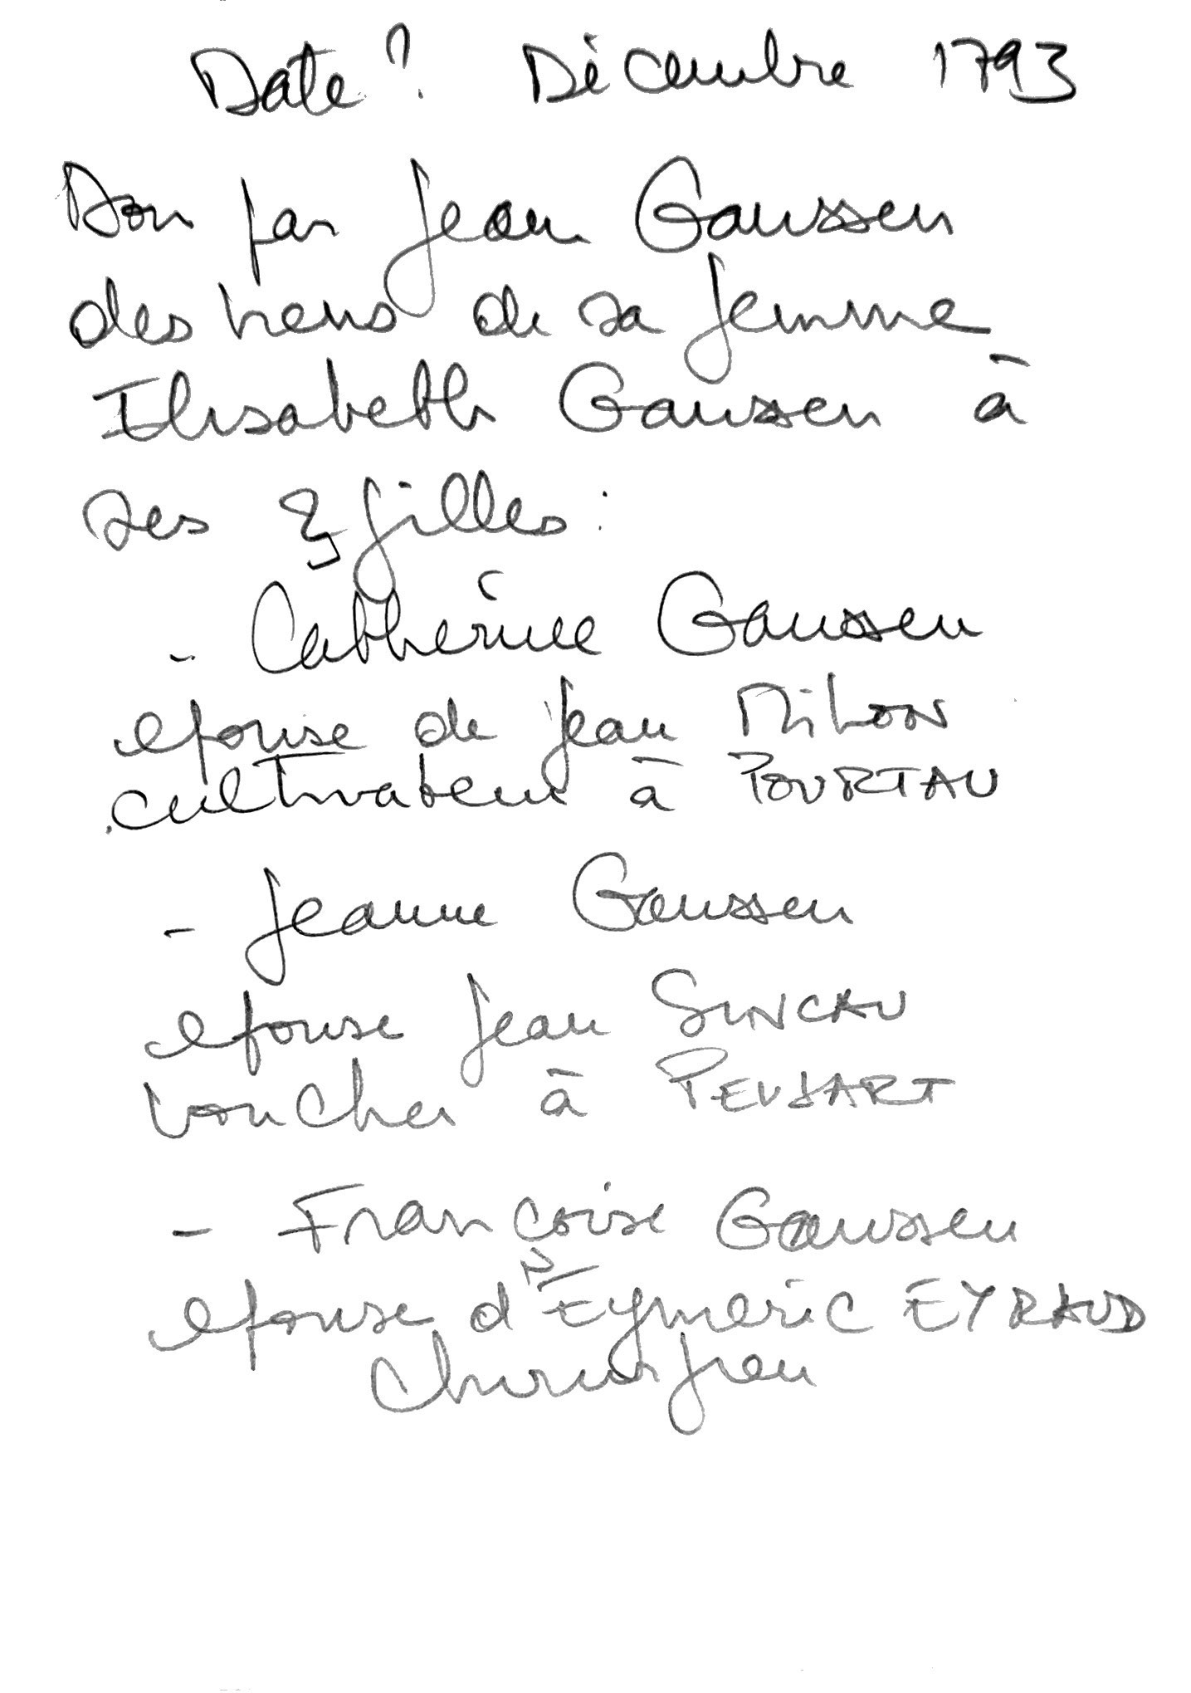 Date ? Décembre 1793
Don par Jean Gaussen
des biens de sa femme
Elisabeth Gaussen à
ses 3 filles :
- Catherine Gaussen
epouse de Jean Milon
cultivateur à POURTAU
- Jeanne Gaussen
epouse Jean SINCAU
boucher à PEUJART
- Françoise Gaussen
epouse d'Eymeric EYRAUD
chirurgien